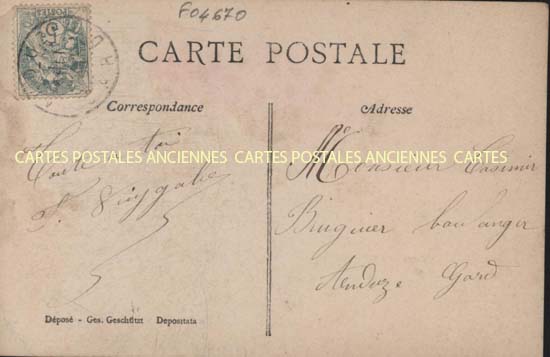 F04670
POSTES
CARTE POSTALE
Correspondance
Adresse
CARTES POSTALES ANCIENNES CARTES POSTALES ANCIENNES CARTES
Monsieur Casimir
Bruguier boulanger
Anduze Gard
Déposé - Ges. Geschützt Depositata